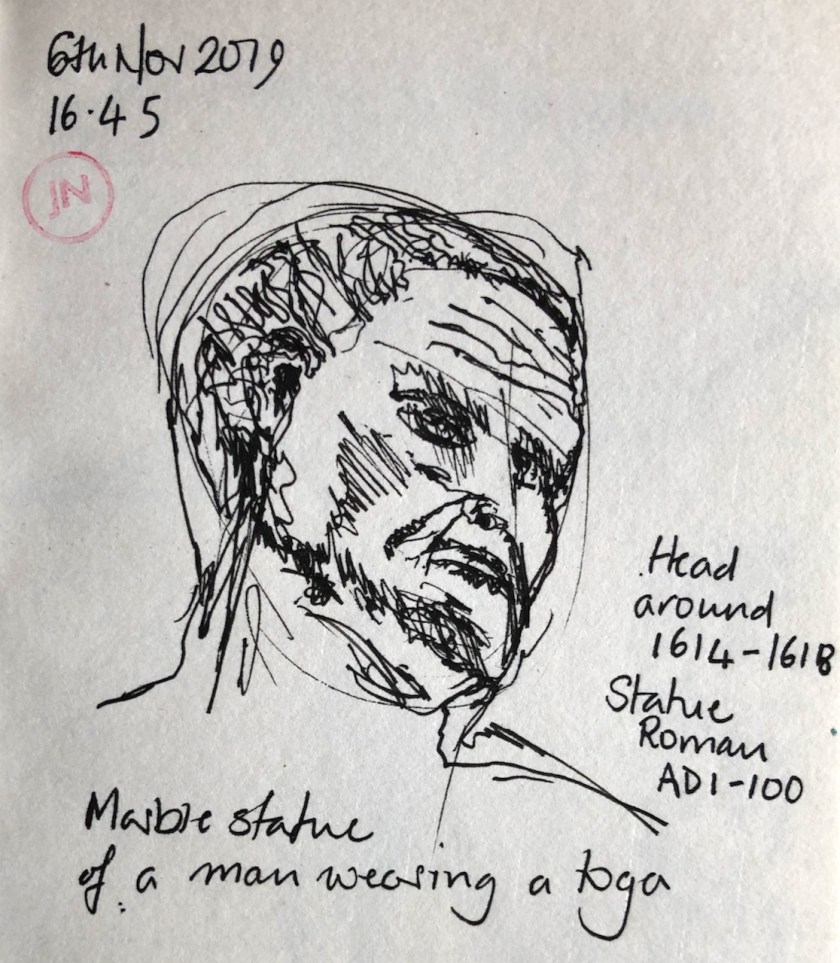 6th Nov 2019
16.45
JN
Head
around
1614-1618
Statue
Roman
AD1-100
Marble statue
of a man wearing a toga